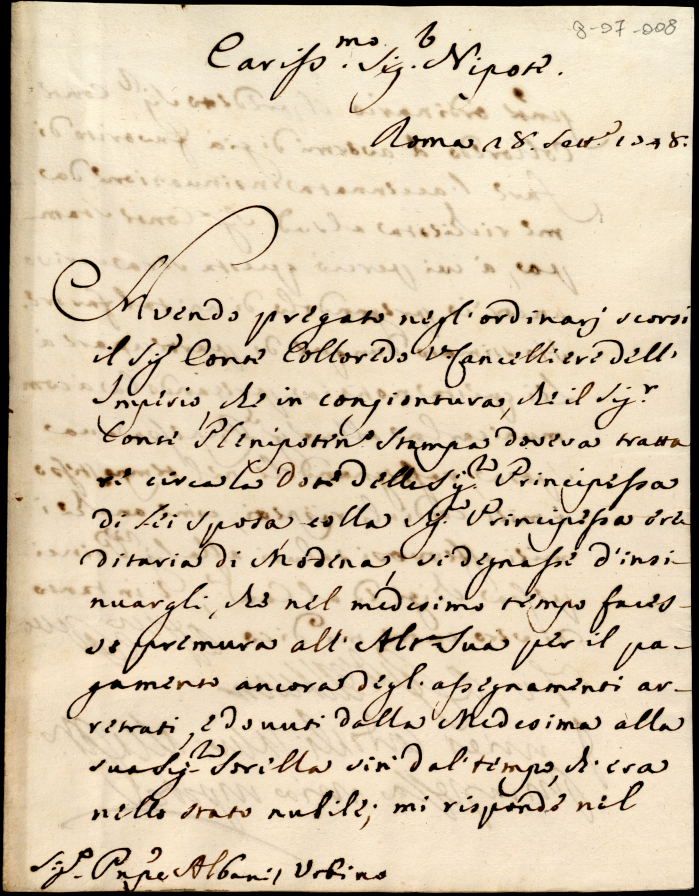 8-07-008
Cariss.mo Sig.r Nipote.
Roma 28. Sett.e 1748.
Avendo pregato negl'ordinarj scorsi
il Sig.r Conte Colloredo V.Cancelliere dell'
Imperio, che in congiontura, che il Sig.r
Conte Plenipoten.e Stampa doveva tratta
re circa la Dote della Sig.ra Principessa
di Lei sposa colla Sig.ra Principessa ere
ditaria di Modena, si degnasse d'insi-
nuargli, che nel medesimo tempo faces-
se premura all'Alt.a Sua per il pa-
gamento ancora degl'assegnamenti ar-
retrati, e dovuti dalla Medesima alla
sua Sig.ra Sorella sin dal tempo, ch'era
nello stato nubile; mi risponde nel
Sig.r Pnpe Albani / Urbino